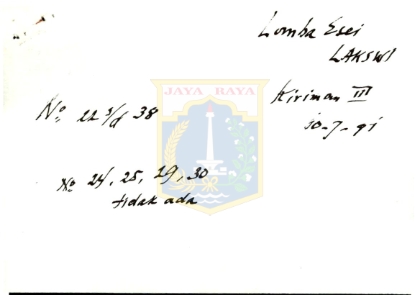 Lomba Esei
LAKSWI
Kiriman III
30-7-91
No 22 s/d 38
No 24, 25, 29, 30
tidak ada
JAYA RAYA